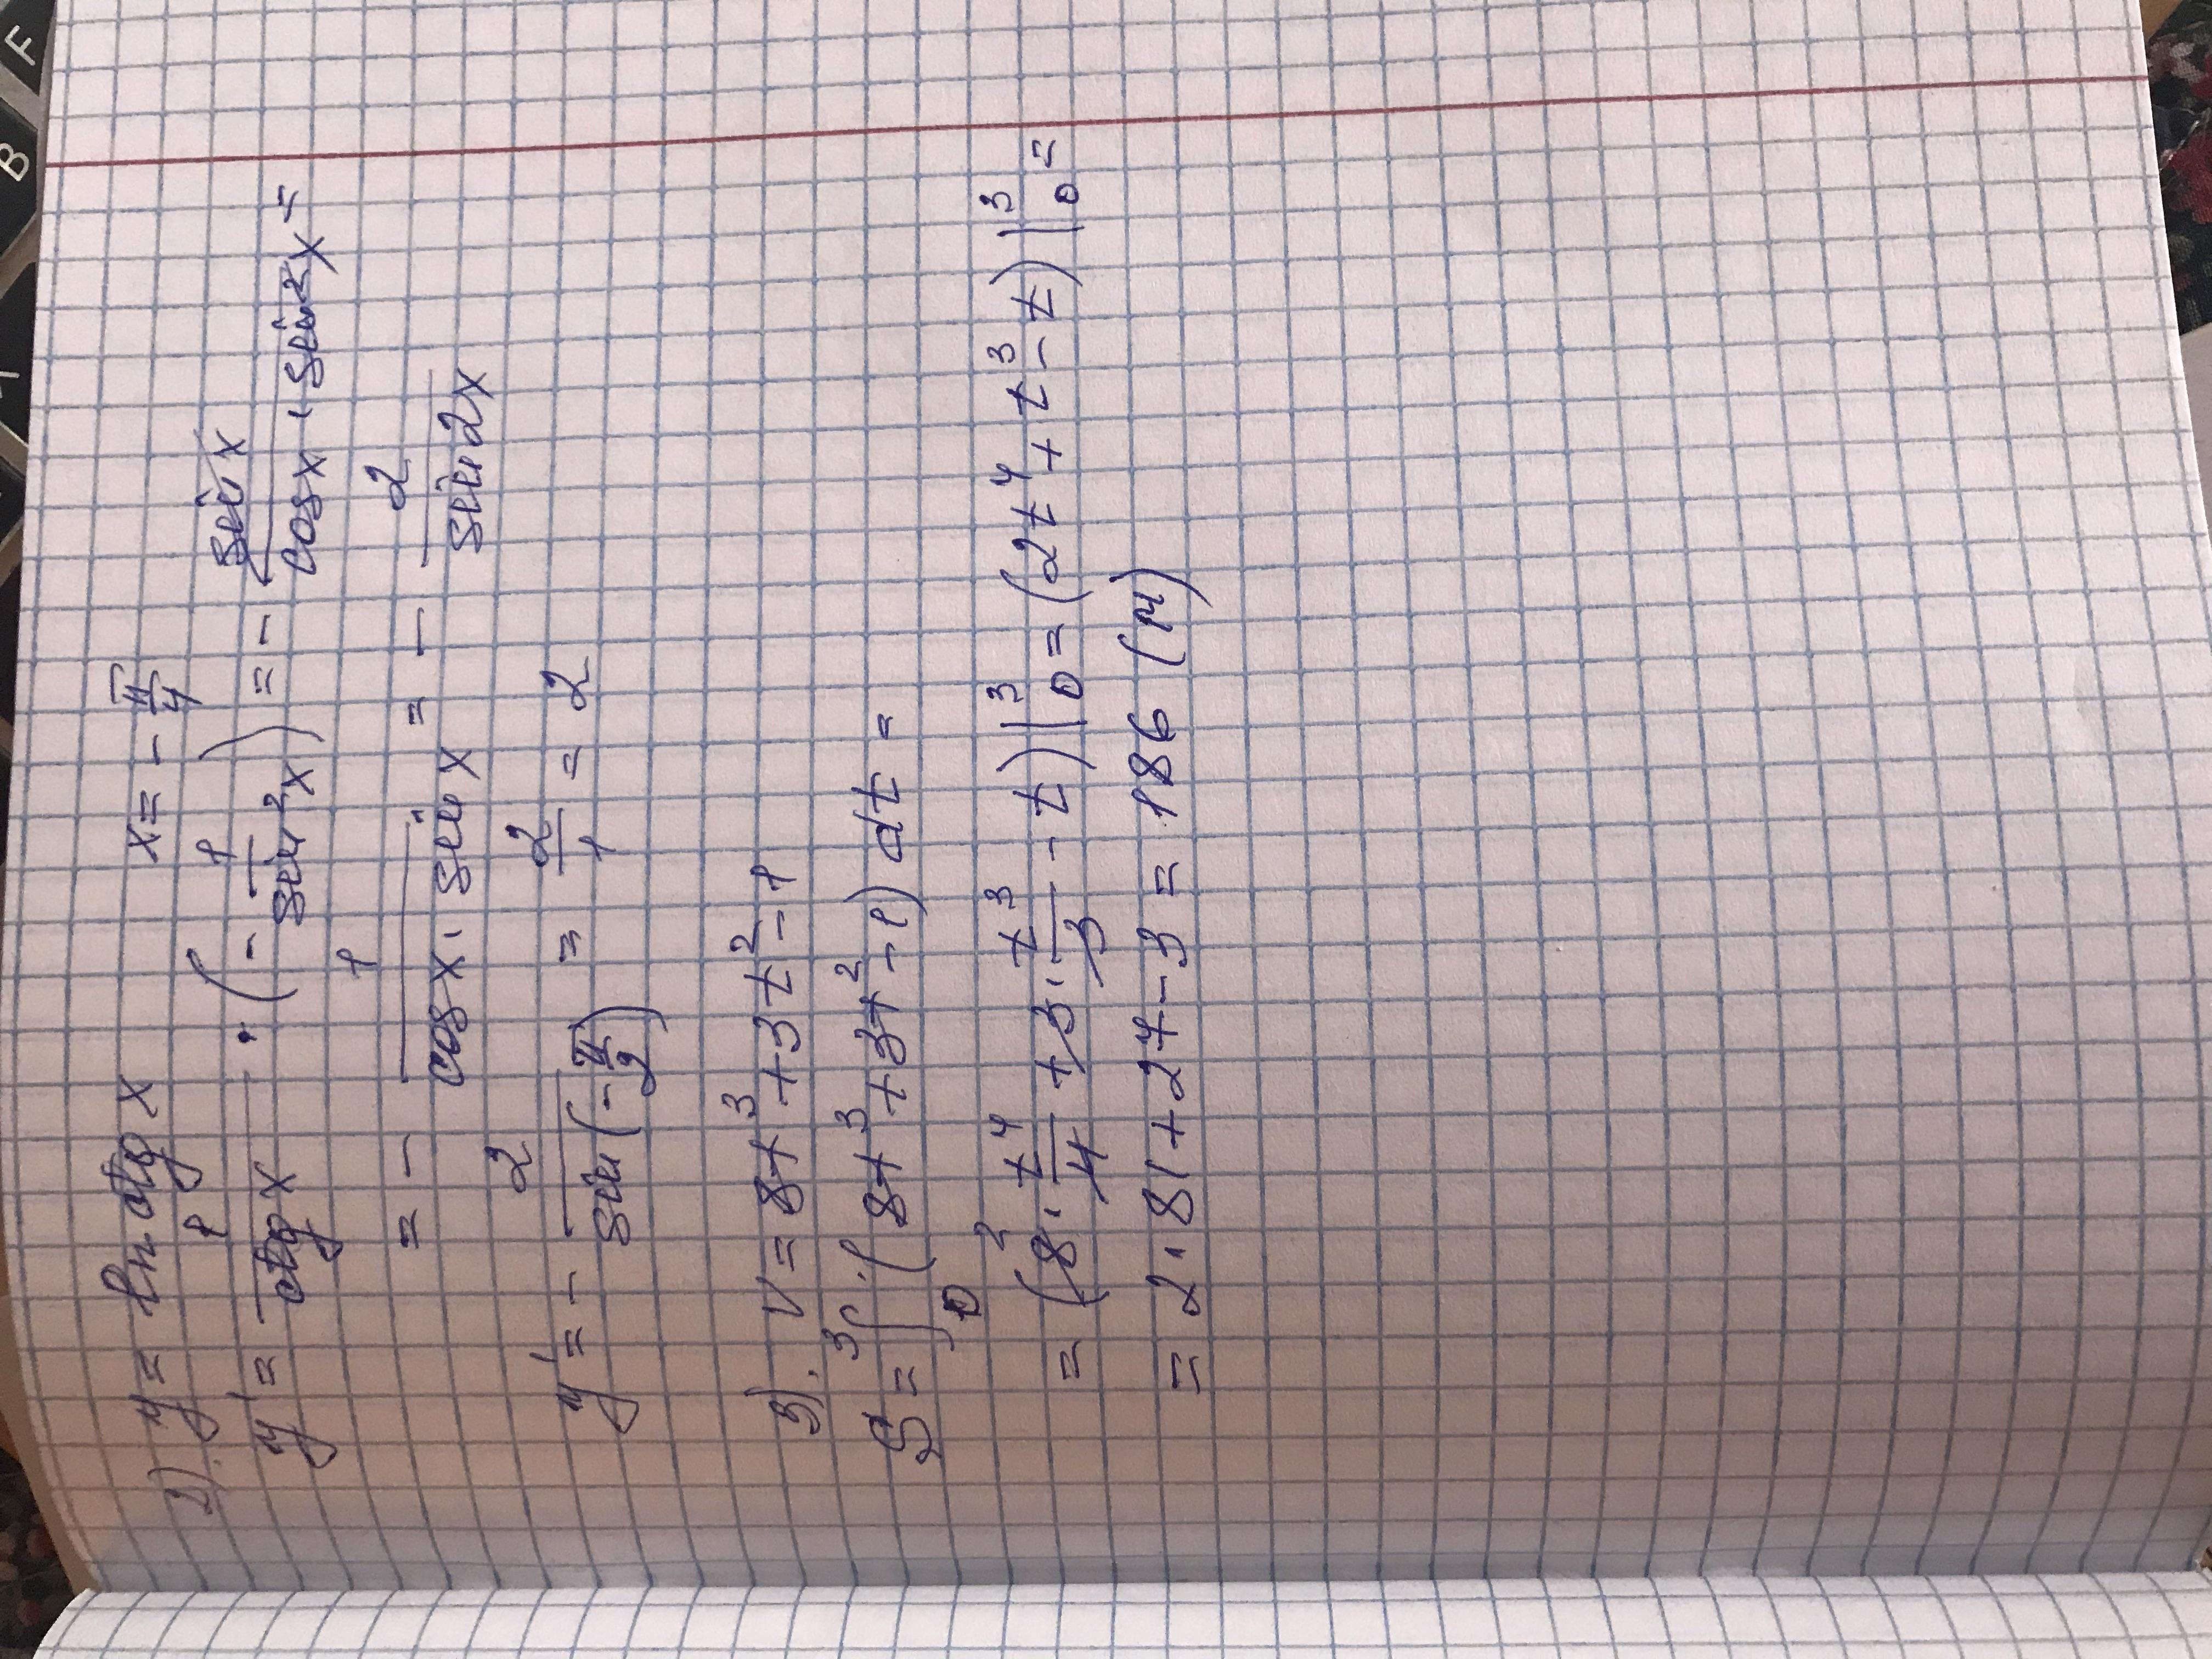 2). y = ln ctg x     x = - π/4
y' = 1/(ctg x) · (- 1/(sin²x)) = - (sin x)/(cos x · sin²x) =
= - 1/(cos x · sin x) = - 2/(sin 2x)
y' = - 2/(sin(-π/2)) = 2/1 = 2
3). V = 8t³ + 3t² - 1
S = ∫₀³ (8t³ + 3t² - 1) dt =
= (8² · t⁴/4 + 3 · t³/3 - t)|₀³ = (2t⁴ + t³ - t)|₀³ =
= 2 · 81 + 27 - 3 = 186 (м)
F
B